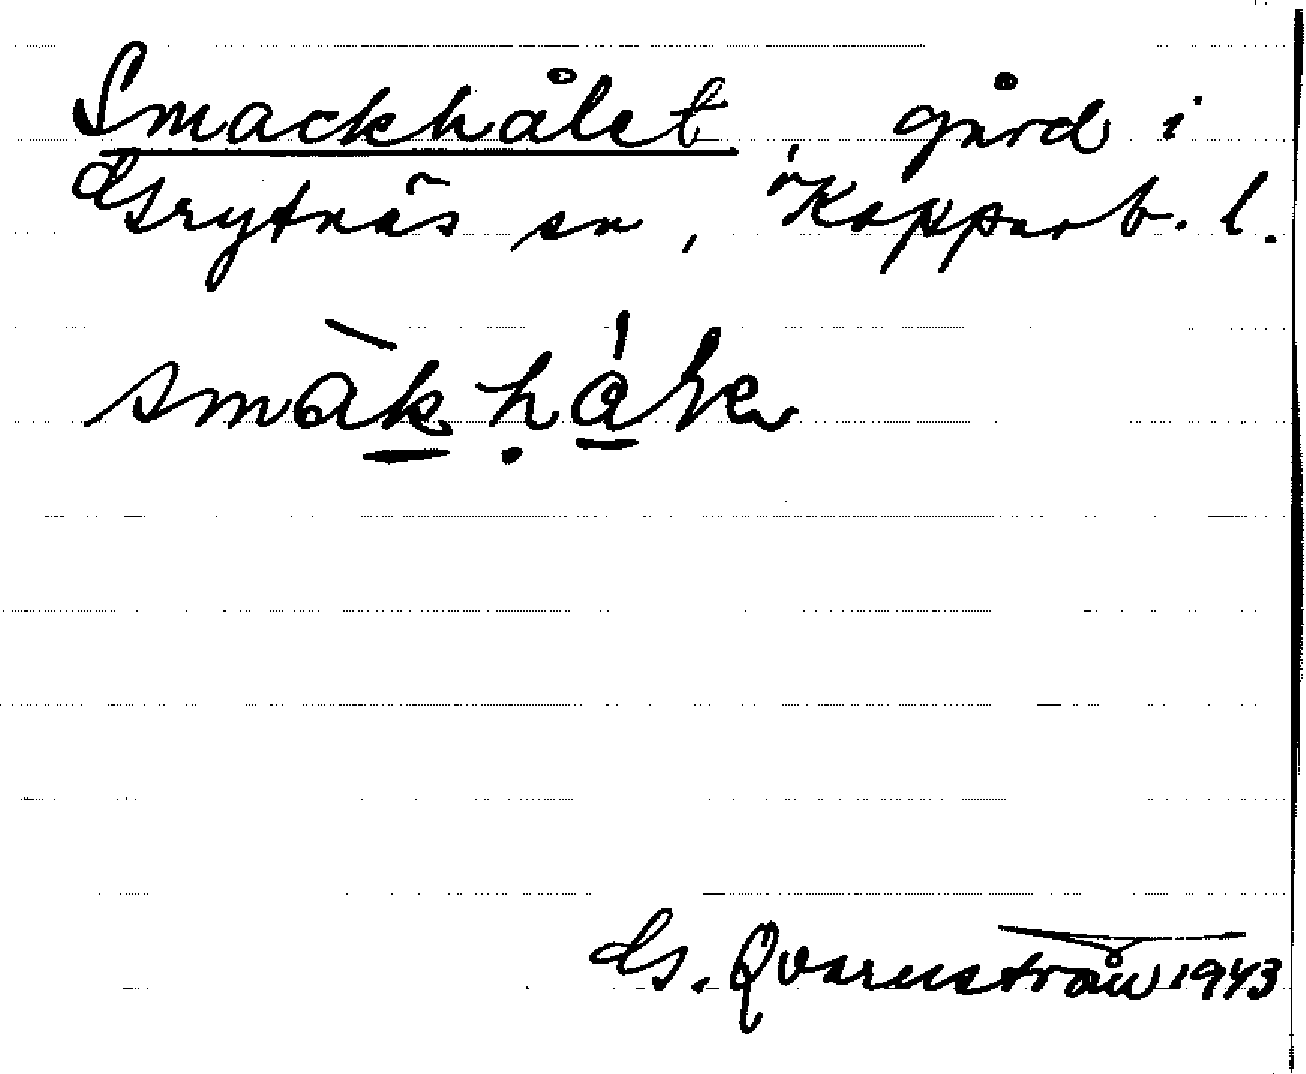 Smackhålet, gård i
Grytnäs sn, Kopparb. l.
G. Qvarnström 1943